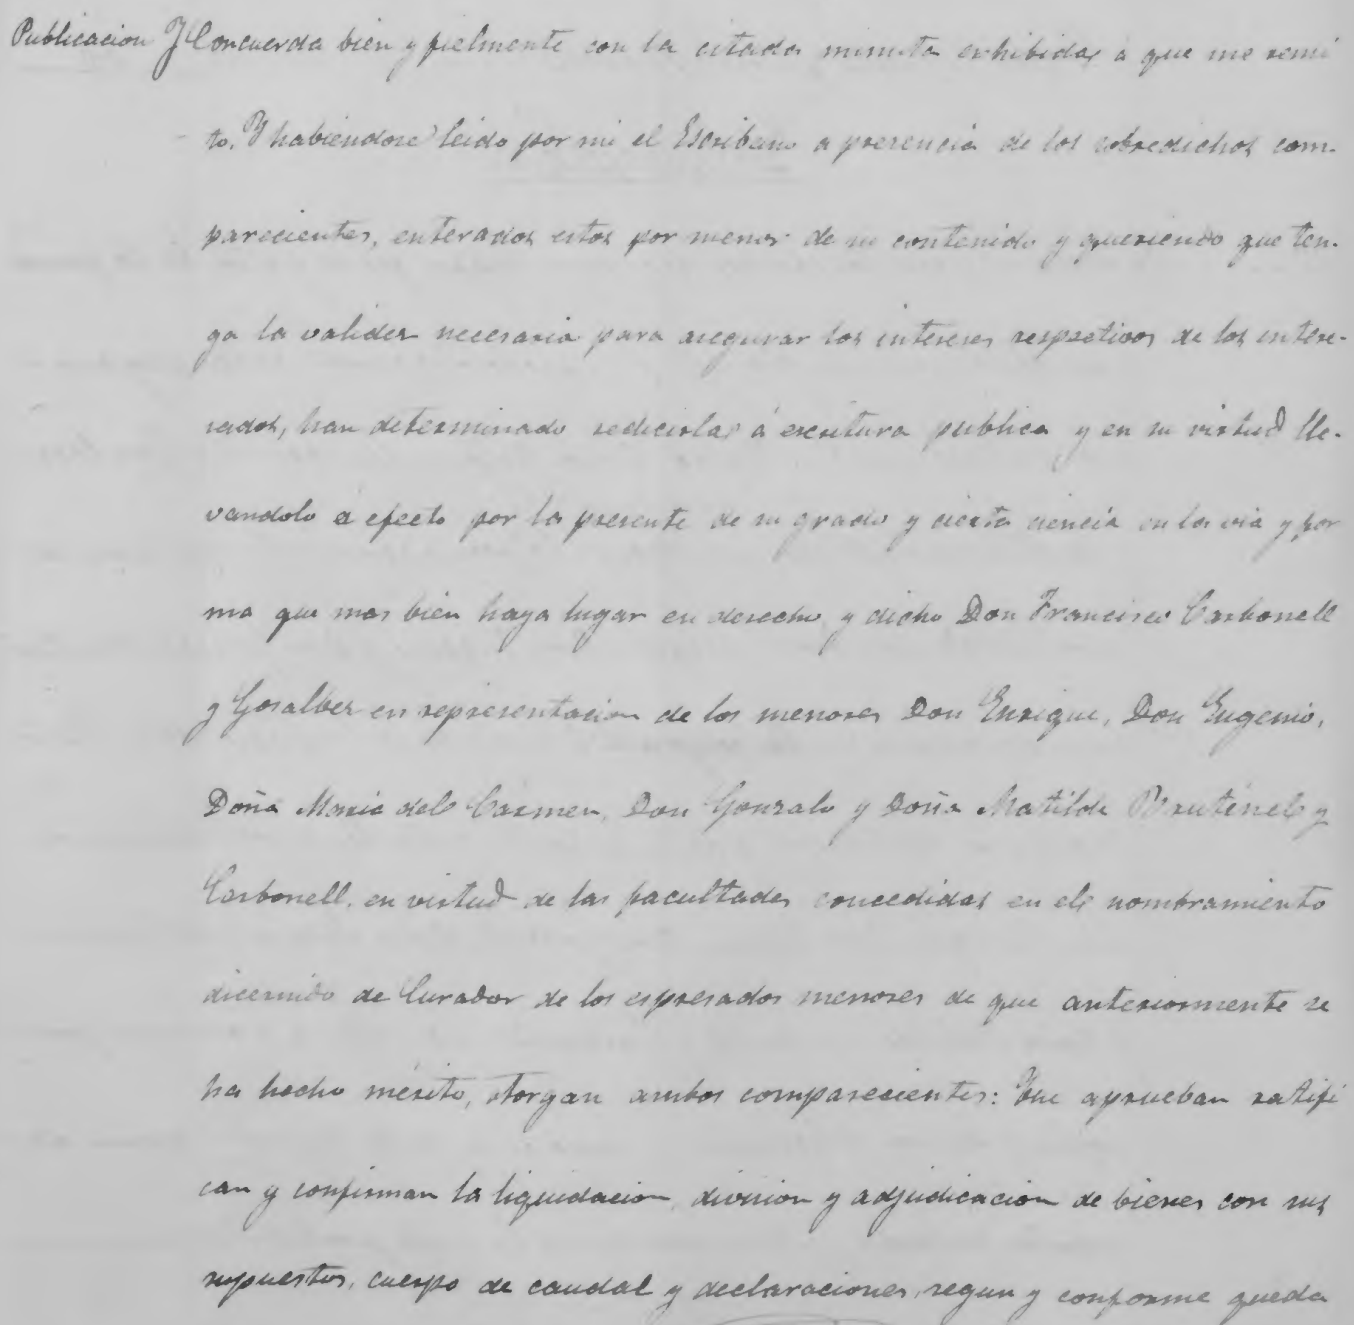 Publicacion Y Concuerda bien y fielmente con la citada minuta exhibida, á que me remi
to. Y habiendose leido por mi el Escribano a presencia de los sobredichos com-
parecientes, enterados estos por menor de su contenido y queriendo que ten-
ga la validez necesaria para asegurar los intereses respectivos de los intere-
sados, han determinado reducirla á escritura publica y en su virtud lle-
vandolo á efecto por la presente de su grado y cierta ciencia en la via y for
ma que mas bien haya lugar en derecho y dicho Don Francisco Carbonell
y Gosalbez en representacion de los menores Don Enrique, Don Eugenio,
Doña Maria del Cármen, Don Gonzalo y Doña Matilde Brutinel y
Carbonell, en virtud de las facultades concedidas en el nombramiento
dicernido de Curador de los espresados menores de que anteriormente se
ha hecho mérito, otorgan ambos comparecientes: Que aprueban ratifi
can y confirman la liquidacion, division y adjudicacion de bienes con sus
supuestos, cuerpo de caudal y declaraciones, segun y conforme queda